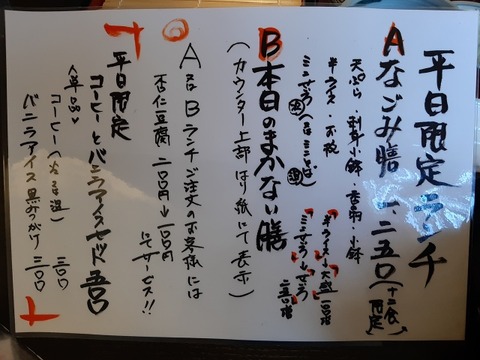 平日限定ランチ
Aなごみ膳 一、二五〇(十二食限定)
天ぷら・刺身小鉢・香物・小鉢
半ライス・お椀
ミニざる(冷)又はミニそば(温)
半ライス→大盛 一〇〇増
ミニざる→ざる 二〇〇増
B本日のまかない膳
(カウンター上部はり紙にて表示)
A又はBランチご注文のお客様には
杏仁豆腐 二〇〇円→一〇〇円
にてサービス!!
平日限定
コーヒーとバニラアイスセット 五〇〇
単品
コーヒー 三〇〇
バニラアイス黒みつがけ 三〇〇